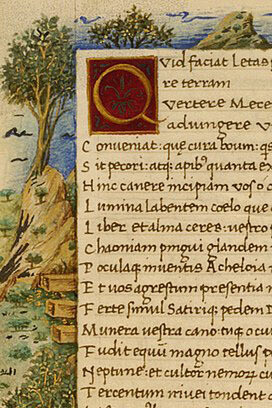 Quid faciat letas
re terram
Vertere Mece
adiungere v
Conveniat: que cura boum: qs
Sit pecori: atq; apibꝰ quanta ex
Hinc canere incipiam vos o c
Lumina labentem coelo que
Liber et alma ceres: vestro s
Chaoniam pingui glandem
Poculaq; inventis Acheloia
Et vos agrestum presentia n
Ferte simul Satiriq; pedem D
Munera vestra cano: tuq; o cu
Fudit equũ magno tellus p
Neptune: et cultor nemorz cu
Tercentum nivei tondent d